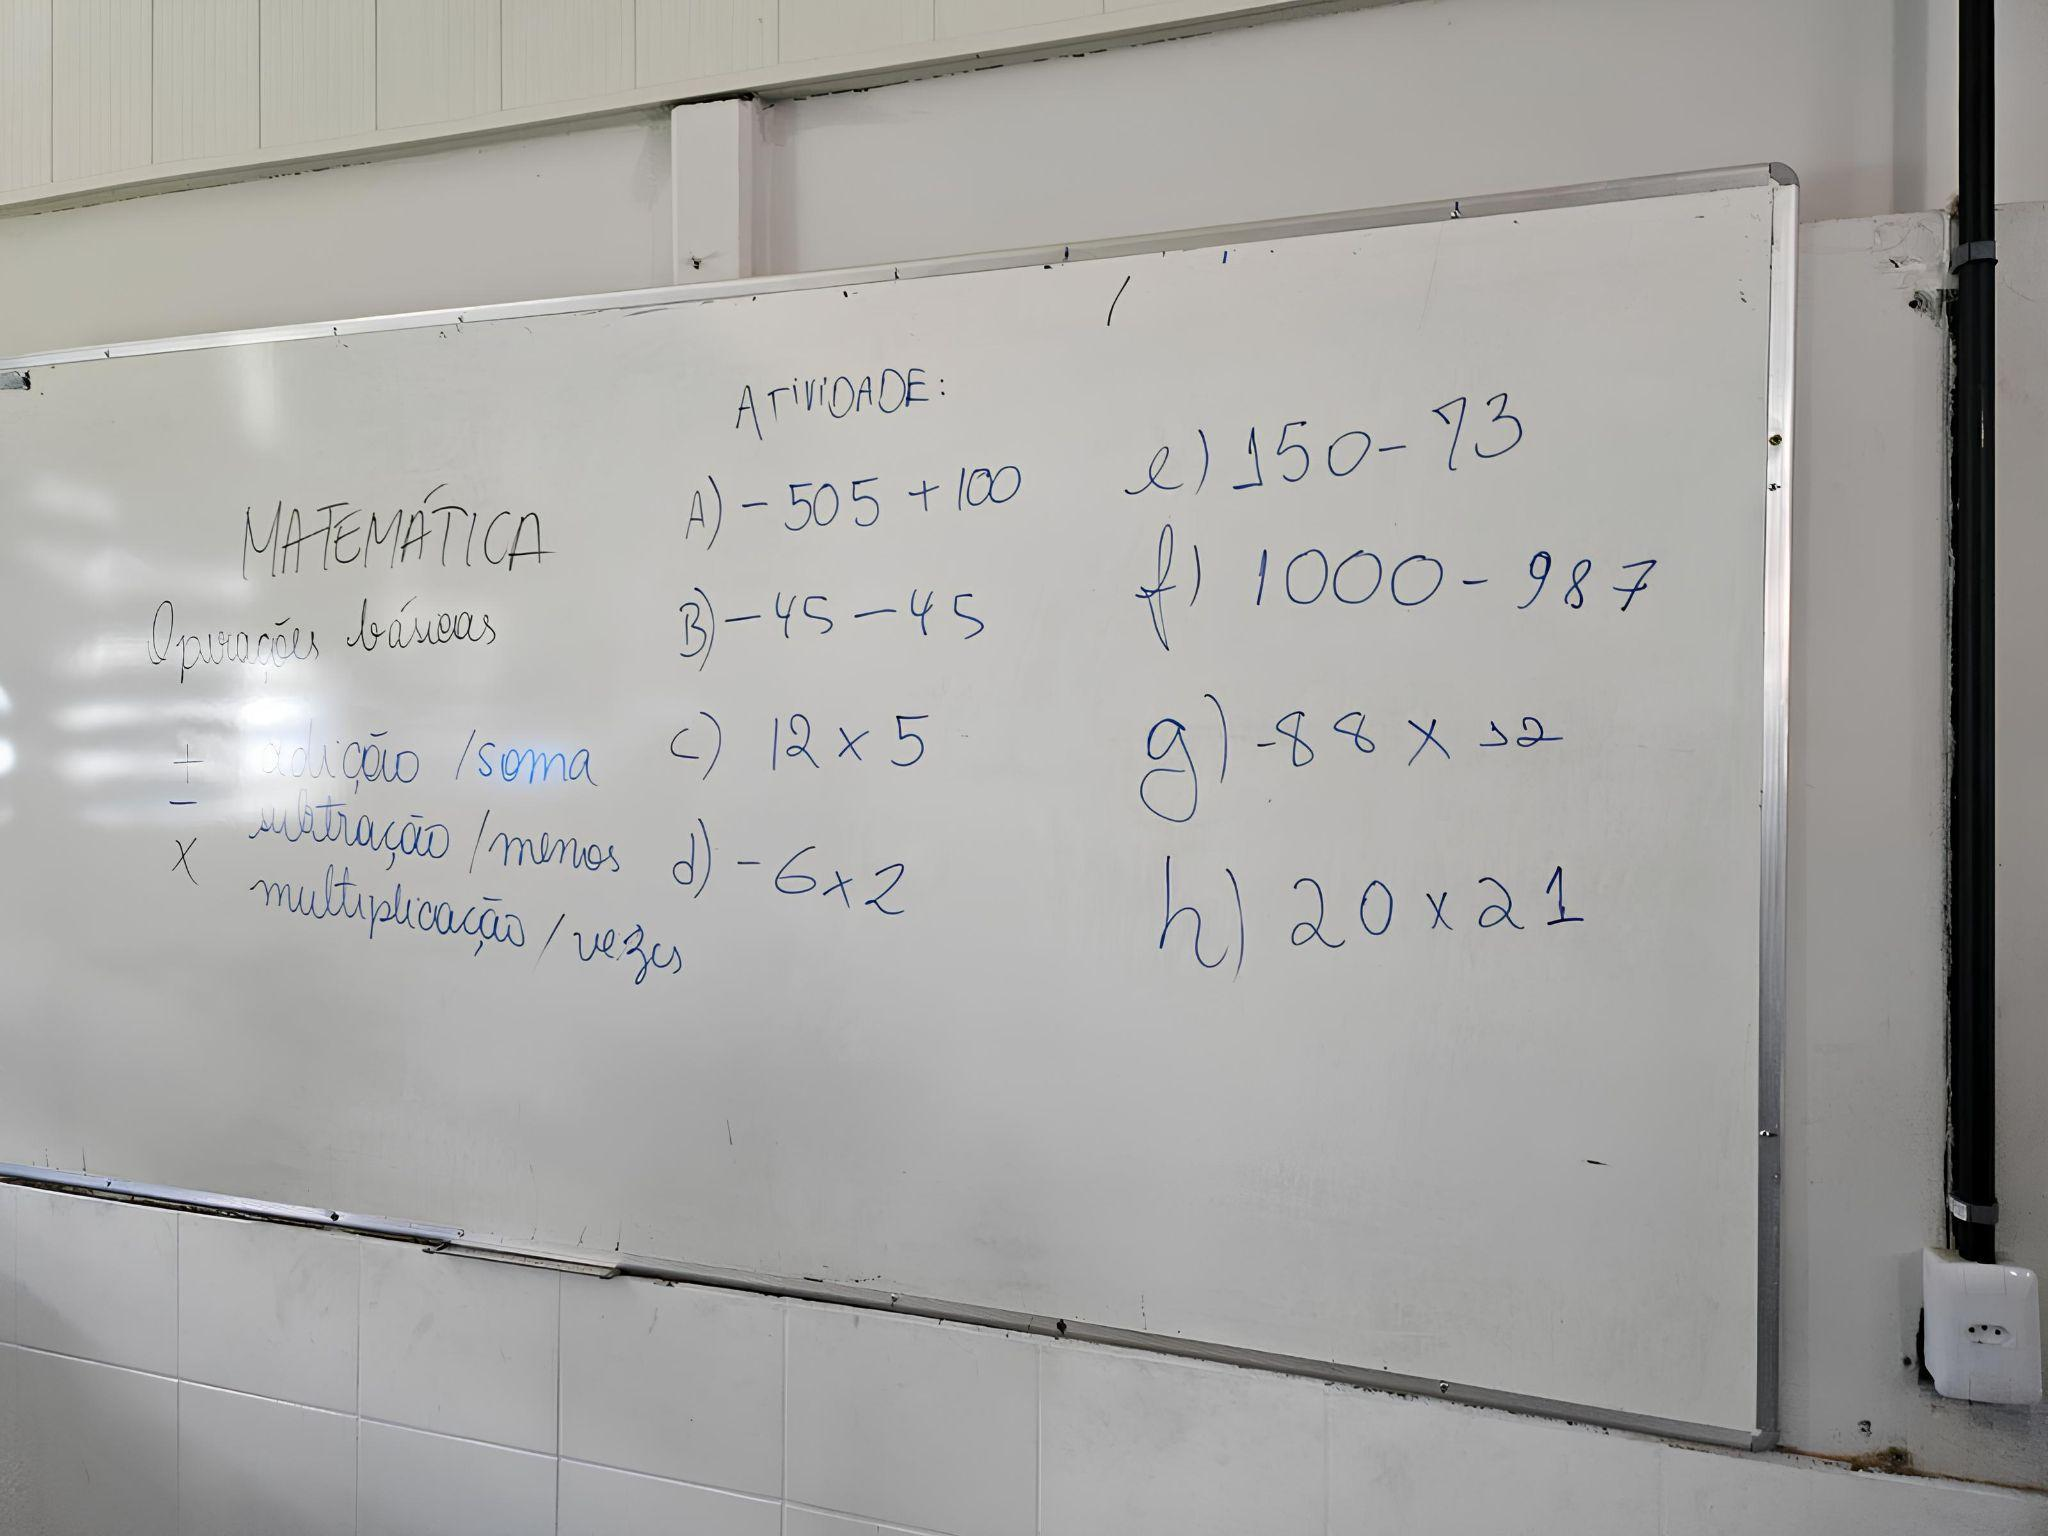 MATEMÁTICA
Operações básicas
+ adição / soma
- subtração / menos
x multiplicação / vezes
ATIVIDADE:
A) - 505 + 100
B) - 45 - 45
c) 12 x 5
d) - 6 x 2
e) 150 - 73
f) 1000 - 987
g) -88 x 12
h) 20 x 21